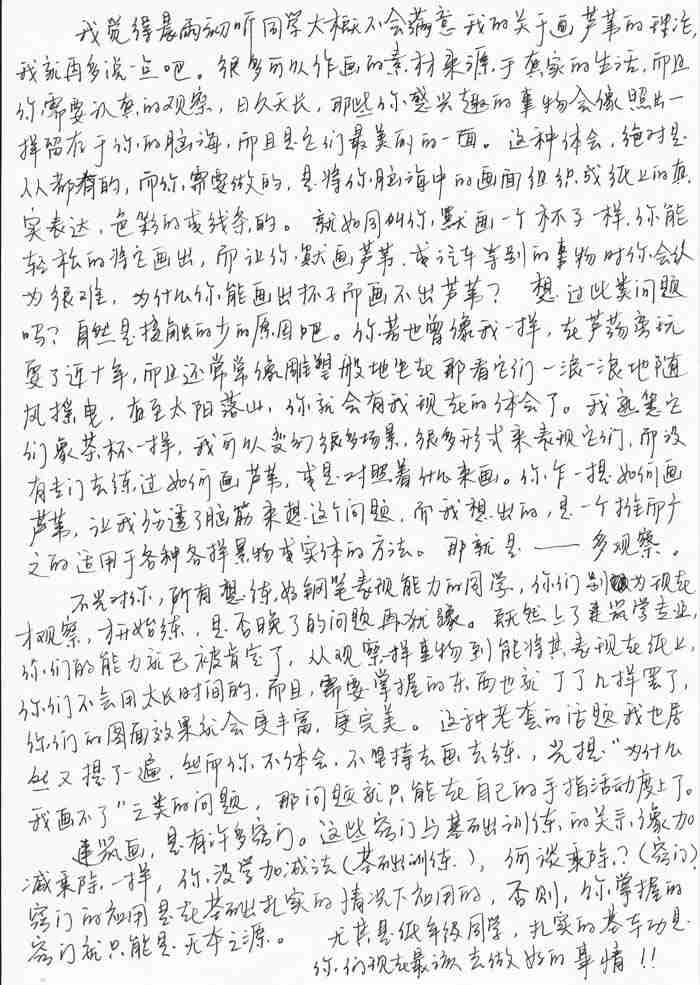 我觉得晨雨初听同学大概不会满意我的关于画芦苇的理论,
我就再多说一点吧。很多可以作画的素材来源于大家的生活,而且
你需要认真的观察,日久天长,那些你感兴趣的事物会像照片一
样留存于你的脑海,而且是它们最美丽的一面。这种体会,绝对是
人人都有的,而你需要做的,是将你脑海中的画面组织成纸上的真
实表达,色彩的或线条的。就如同叫你默画一个杯子一样,你能
轻松的将它画出,而让你默画芦苇,或汽车等别的事物时你会认
为很难,为什么你能画出杯子而画不出芦苇? 想过此类问题
吗?自然是接触的少的原因吧。你若也曾像我一样,在芦荡旁玩
耍了近十年,而且还常常像雕塑般地坐在那看它们一浪一浪地随
风摇曳,直至太阳落山,你就会有我现在的体会了。我熟悉它
们象茶杯一样,我可以变幻很多场景,很多形式来表现它们,而没
有专门去练过如何画芦苇,或是对照着什么来画。你乍一提如何画
芦苇,让我伤透了脑筋来想这个问题,而我想出的,是一个推而广
之的适用于各种各样景物或实体的方法。那就是——多观察。
不光对你,所有想练好钢笔表现能力的同学,你们别为现在
才观察,才开始练,是否晚了的问题再犹豫。既然上了建筑学专业,
你们的能力就已被肯定了,从观察一样事物到能将其表现在纸上,
你们不会用太长时间的,而且,需要掌握的东西也就了了几样罢了,
你们的图面效果就会更丰富,更完美。这种老套的话题我也居
然又提了一遍,然而你不体会,不坚持去画去练,光提“为什么
我画不了”之类的问题,那问题就只能在自己的手指活动度上了。
建筑画,是有许多窍门。这些窍门与基础训练的关系,像加
减乘除一样,你没学加减法(基础训练),何谈乘除?(窍门)
窍门的运用是在基础扎实的情况下运用的,否则,你掌握的
窍门就只能是无本之源。 尤其是低年级同学,扎实的基本功是
你们现在最该去做好的事情!!